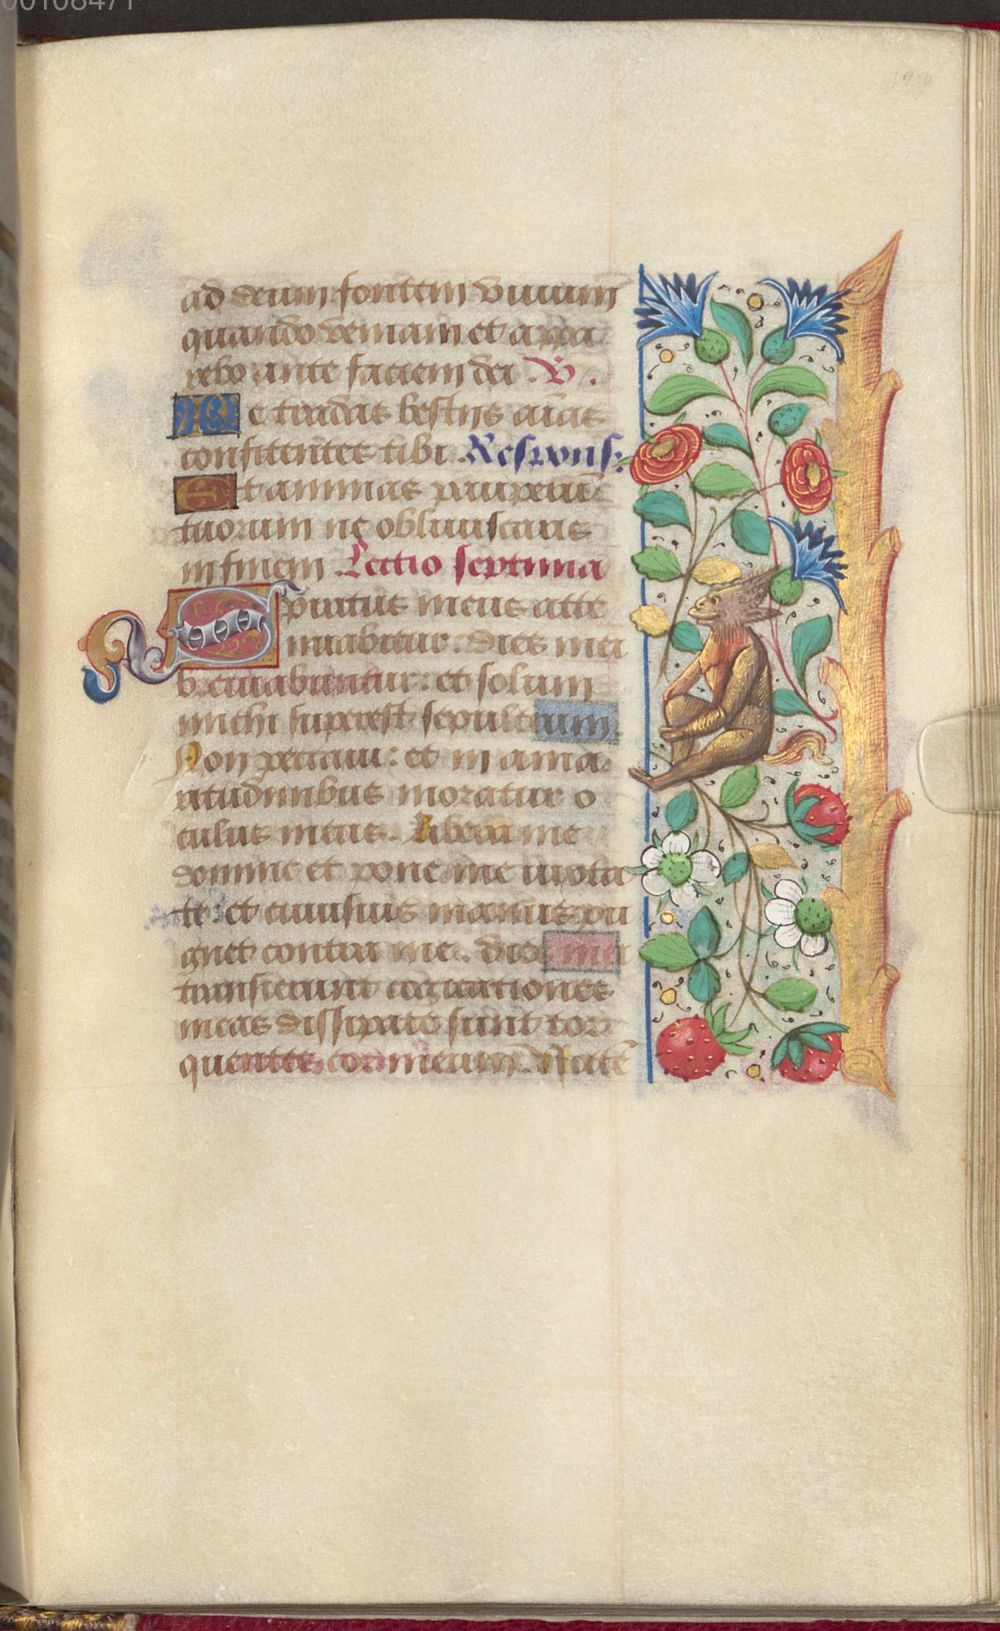 00108471
ad deum fontem viuum
quando veniam et appa
rebo ante faciem dei. V.
Ne tradas bestijs aīas
confitentes tibi. Respons:
Et animas pauperū
tuorum ne obliuiscaris
in finem Lectio septima
Spiritus meus atte
nuabitur. dies mei
breuiabuntur: et solum
michi superest sepulcrum
Non peccaui: et in ama
ritudinibus moratur o
culus meus. Libera me
domine et pone me iuxta
te: et cuiusuis manus pu
gnet contra me. dies mei
transierunt cogitationes
mee dissipate sunt tor
quentes cor meum. Nocte